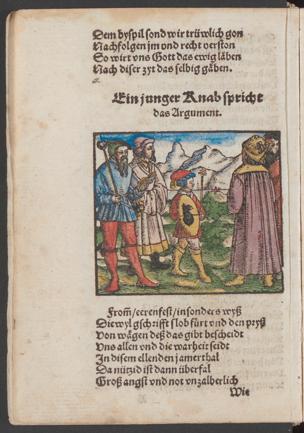 Dem byspil sond wir trüwlich gon
Nachfolgen jm und recht verston
So wirt vns Gott das ewig läben
Nach diser zyt das selbig gäben.
Ein junger Knab spricht
das Argument.
From̃/eerenfest/insonders wyß
Diewyl gschrifft lob fürt vnd den pryß
Von wägen deß das gibt bescheidt
Vns allen vnd die warheit seidt
In disem ellenden jamerthal
Da nützid ist dann überfal
Groß angst vnd not vnzalberlich
Wie